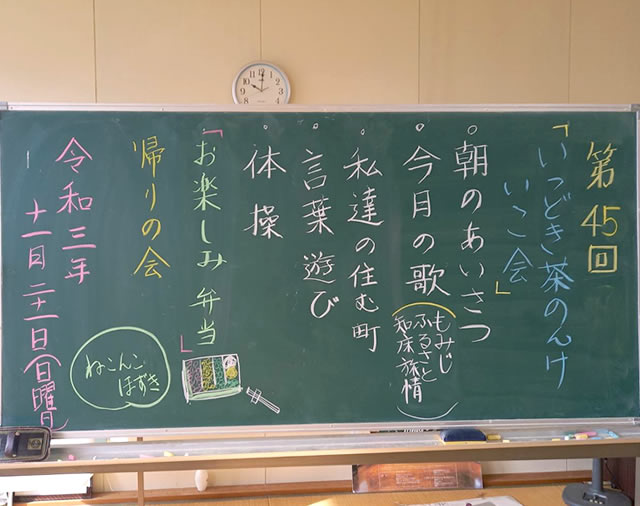 第45回
「いっどき茶のんけ
いこ会」
。朝のあいさつ
。今月の歌
もみじ
ふるさと
知床旅情
・私達の住む町
・言葉遊び
・体操
「お楽しみ弁当」
帰りの会
ねこんこ
ほずき
令和三年
十一月二十一日(日曜日)